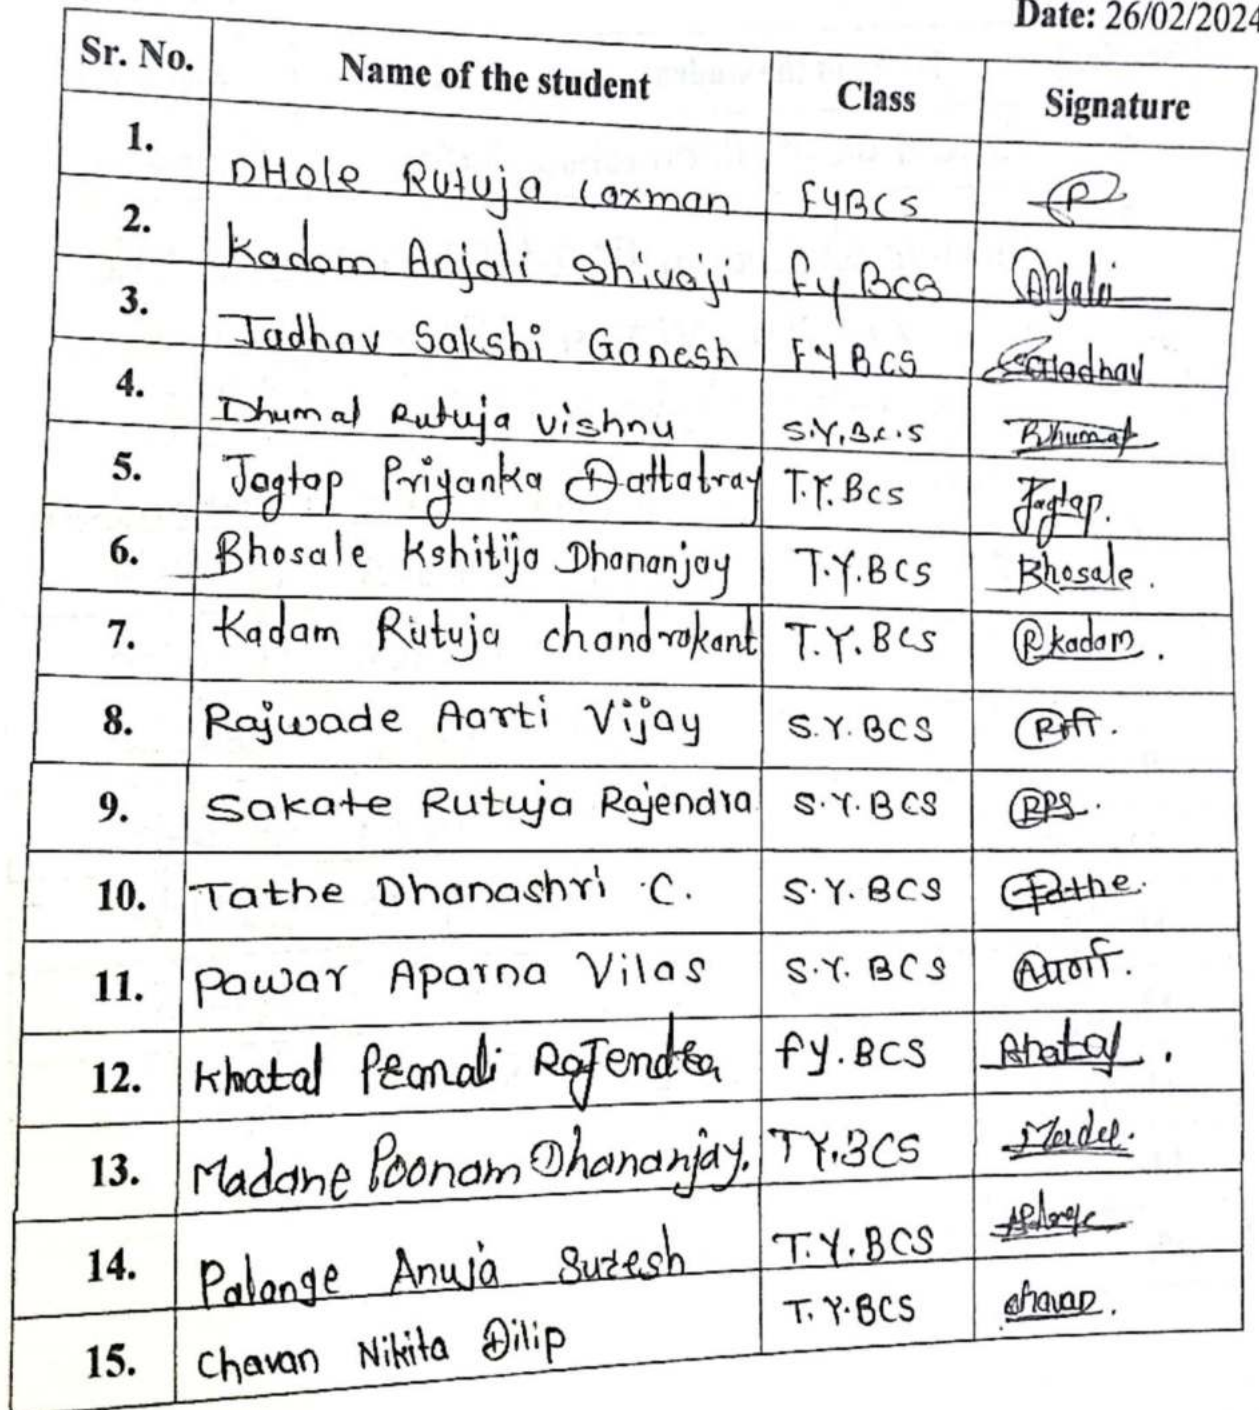 Date: 26/02/2024
Sr. No. Name of the student Class Signature
1. DHole Rutuja Laxman FYBCS
2. Kadam Anjali Shivaji Fy BCS Anjali
3. Jadhav Sakshi Ganesh FY BCS
4. Dhumal Rutuja vishnu S.Y.B.C.S
5. Jagtap Priyanka Dattatray T.Y.Bcs Jagtap.
6. Bhosale Kshitija Dhananjay T.Y.BCS Bhosale.
7. Kadam Rutuja chandrakant T.Y.BCS Rkadam.
8. Rajwade Aarti Vijay S.Y.BCS
9. Sakate Rutuja Rajendra S.Y.BCS
10. Tathe Dhanashri C. S.Y.BCS Tathe.
11. Pawar Aparna Vilas S.Y.BCS
12. Khatal Rajendra fy.BCS
13. Madane Poonam Dhananjay. TY.BCS
14. Palange Anuja Suresh T.Y.BCS
15. Chavan Nikita Dilip T.Y.BCS chavan.